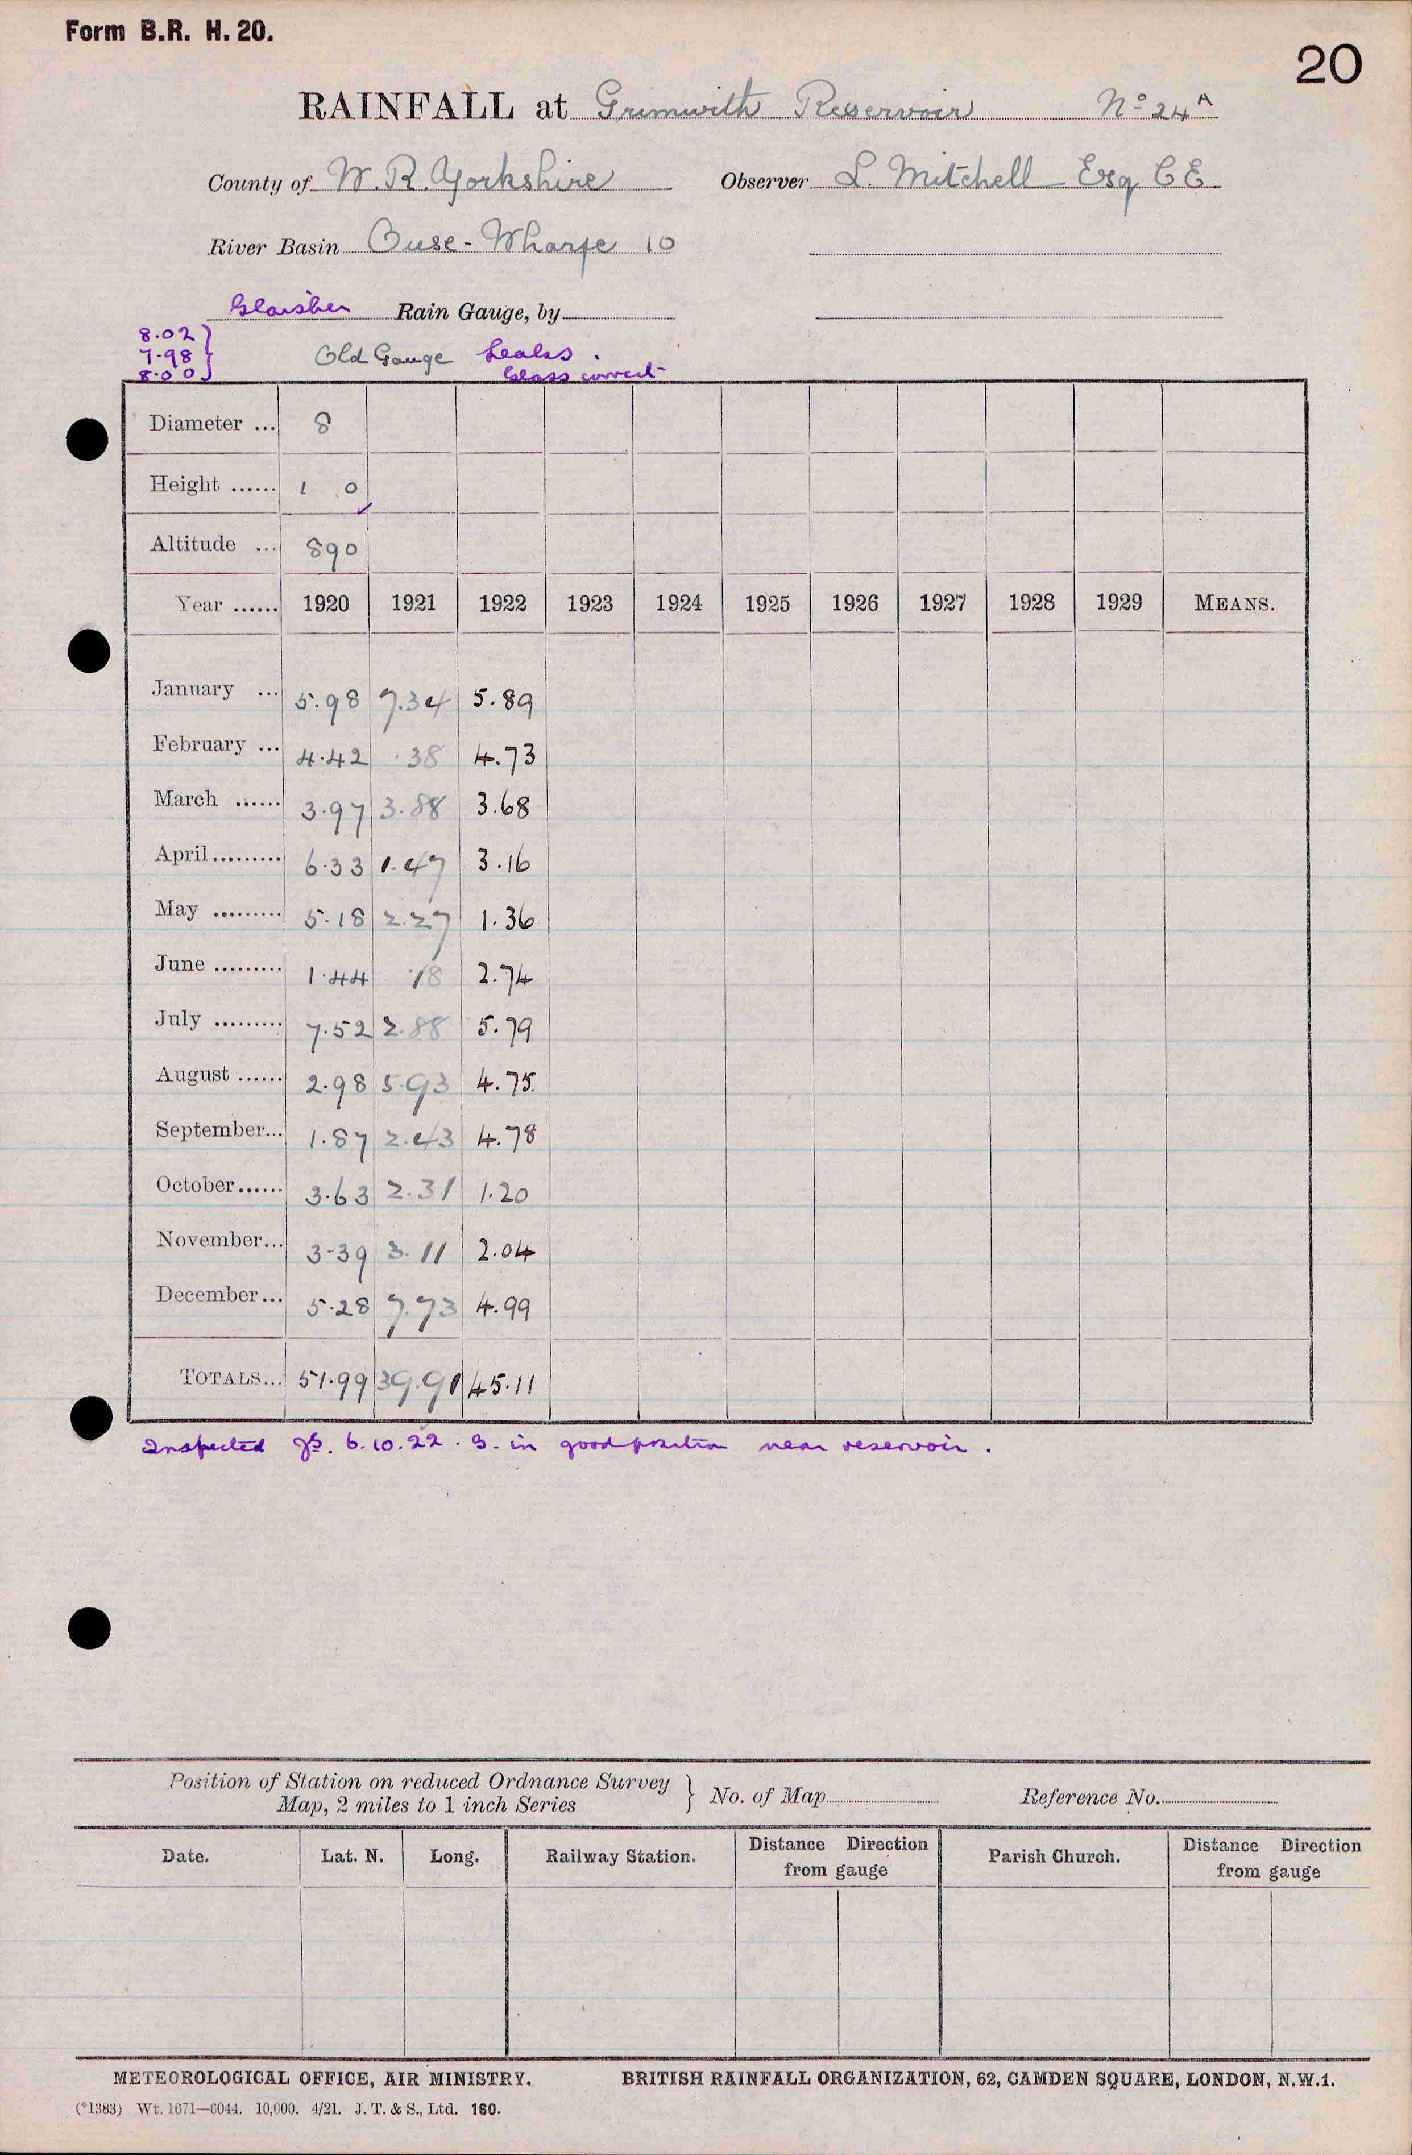 Form B.R. H. 20.
20
RAINFALL at Grimwith Reservoir No 24A
County of W. R. Yorkshire Observer L. Mitchell Esq C E.
River Basin Ouse - Wharfe 10
Glaisher Rain Gauge, by
8.02
7.98
8.00
Old Gauge Leaks.
Glass correct
Diameter ... 8
Height ...... 1 0
Altitude ... 890
Year ...... 1920 1921 1922 1923 1924 1925 1926 1927 1928 1929 MEANS.
January ... 5.98 7.34 5.89
February ... 4.42 .38 4.73
March ...... 3.97 3.88 3.68
April......... 6.33 1.47 3.16
May ......... 5.18 2.27 1.36
June ......... 1.44 .18 2.74
July ......... 7.52 2.88 5.79
August ...... 2.98 5.93 4.75
September... 1.87 2.43 4.78
October...... 3.63 2.31 1.20
November... 3.39 3.11 2.04
December... 5.28 7.73 4.99
TOTALS... 51.99 39.91 45.11
Inspected 6.10.22. in good position near reservoir.
Position of Station on reduced Ordnance Survey
Map, 2 miles to 1 inch Series } No. of Map Reference No.
Date. Lat. N. Long. Railway Station. Distance Direction from gauge Parish Church. Distance Direction from gauge
METEOROLOGICAL OFFICE, AIR MINISTRY. BRITISH RAINFALL ORGANIZATION, 62, CAMDEN SQUARE, LONDON, N.W.1.
(*1383) Wt. 1671—6044. 10,000. 4/21. J. T. & S., Ltd. 160.